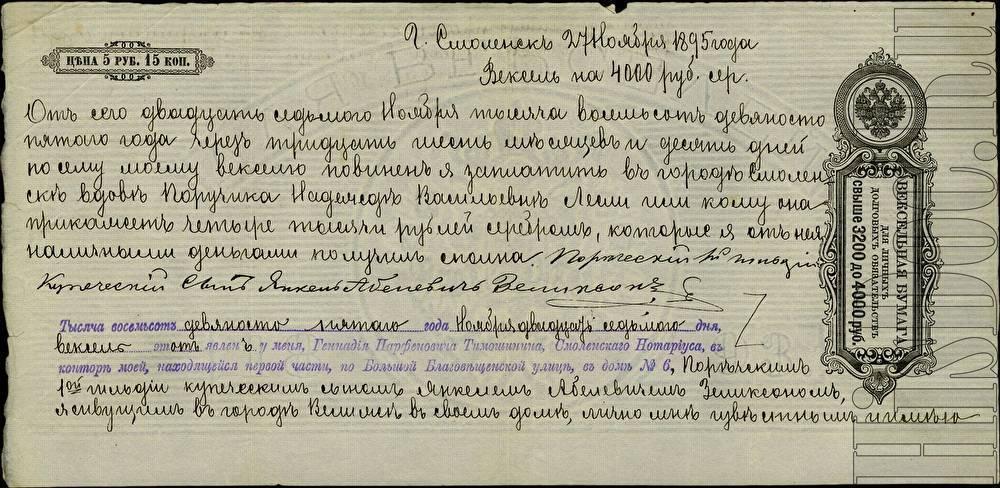 ЦѢНА 5 РУБ. 15 КОП.
Г. Смоленскъ 27 Ноября 1895 года
Вексель на 4000 руб. сер.
Отъ сего двадцать седьмого Ноября тысяча восемьсотъ девяносто
пятаго года черезъ тридцать шесть мѣсяцевъ и десять дней
по сему моему векселю повиненъ я заплатить въ городѣ Смолен
скѣ вдовѣ Поручика Надеждѣ Васильевнѣ или кому она
прикажетъ четыре тысячи рублей серебромъ, которые я отъ нея
наличными деньгами получилъ сполна. Порѣчскій 1й гильдіи
Купеческій Сынъ Янкель Абелевичъ
Тысяча восемьсотъ девяносто пятаго года Ноября двадцать седьмого дня,
вексель этотъ явленъ у меня, Геннадія Парѳеновича Тимошинина, Смоленскаго Нотаріуса, въ
конторѣ моей, находящейся первой части, по Большой Благовѣщенской улицѣ, въ домѣ № 6, Порѣчскимъ
1ой гильдіи купеческимъ сыномъ Янкелемъ Абелевичемъ
живущимъ въ городѣ Велижѣ въ своемъ домѣ, лично мнѣ извѣстнымъ и имѣю
ВЕКСЕЛЬНАЯ БУМАГА
ДЛЯ ЛИЧНЫХЪ
ДОЛГОВЫХЪ ОБЯЗАТЕЛЬСТВЪ
СВЫШЕ 3200 ДО 4000 РУБ.